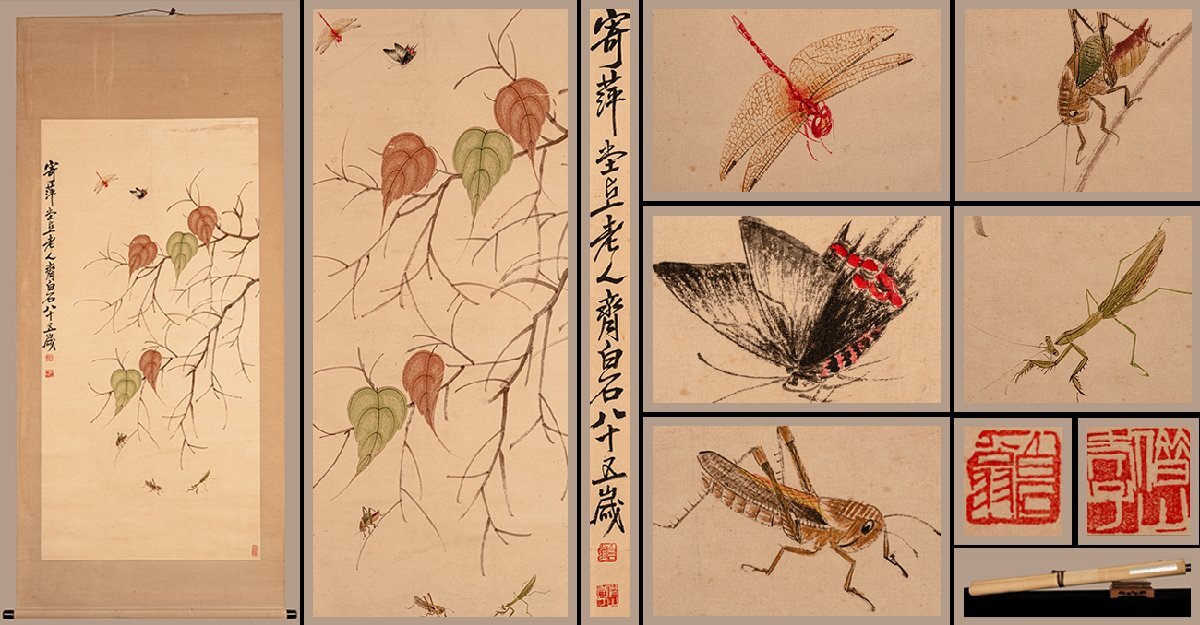 寄萍堂上老人齊白石八十五歲
白石翁